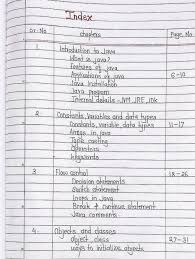 Index
Sr. No chapters Page. No
1. Introduction to Java
What is java?
Features of java
Applications of java 6-10
Java Installation
Java program
Internal details - JVM, JRE, JDK
2. Constants, variables and data types
Constants, variable, data types 11-17
Arrays in java
Type casting
Operators
Keywords
3. Flow control 18-26
Decision statements
Switch statement
Loops in java
Break & continue statement
Java comments
4. Objects and classes
object, class 27-31
ways to initialize objects